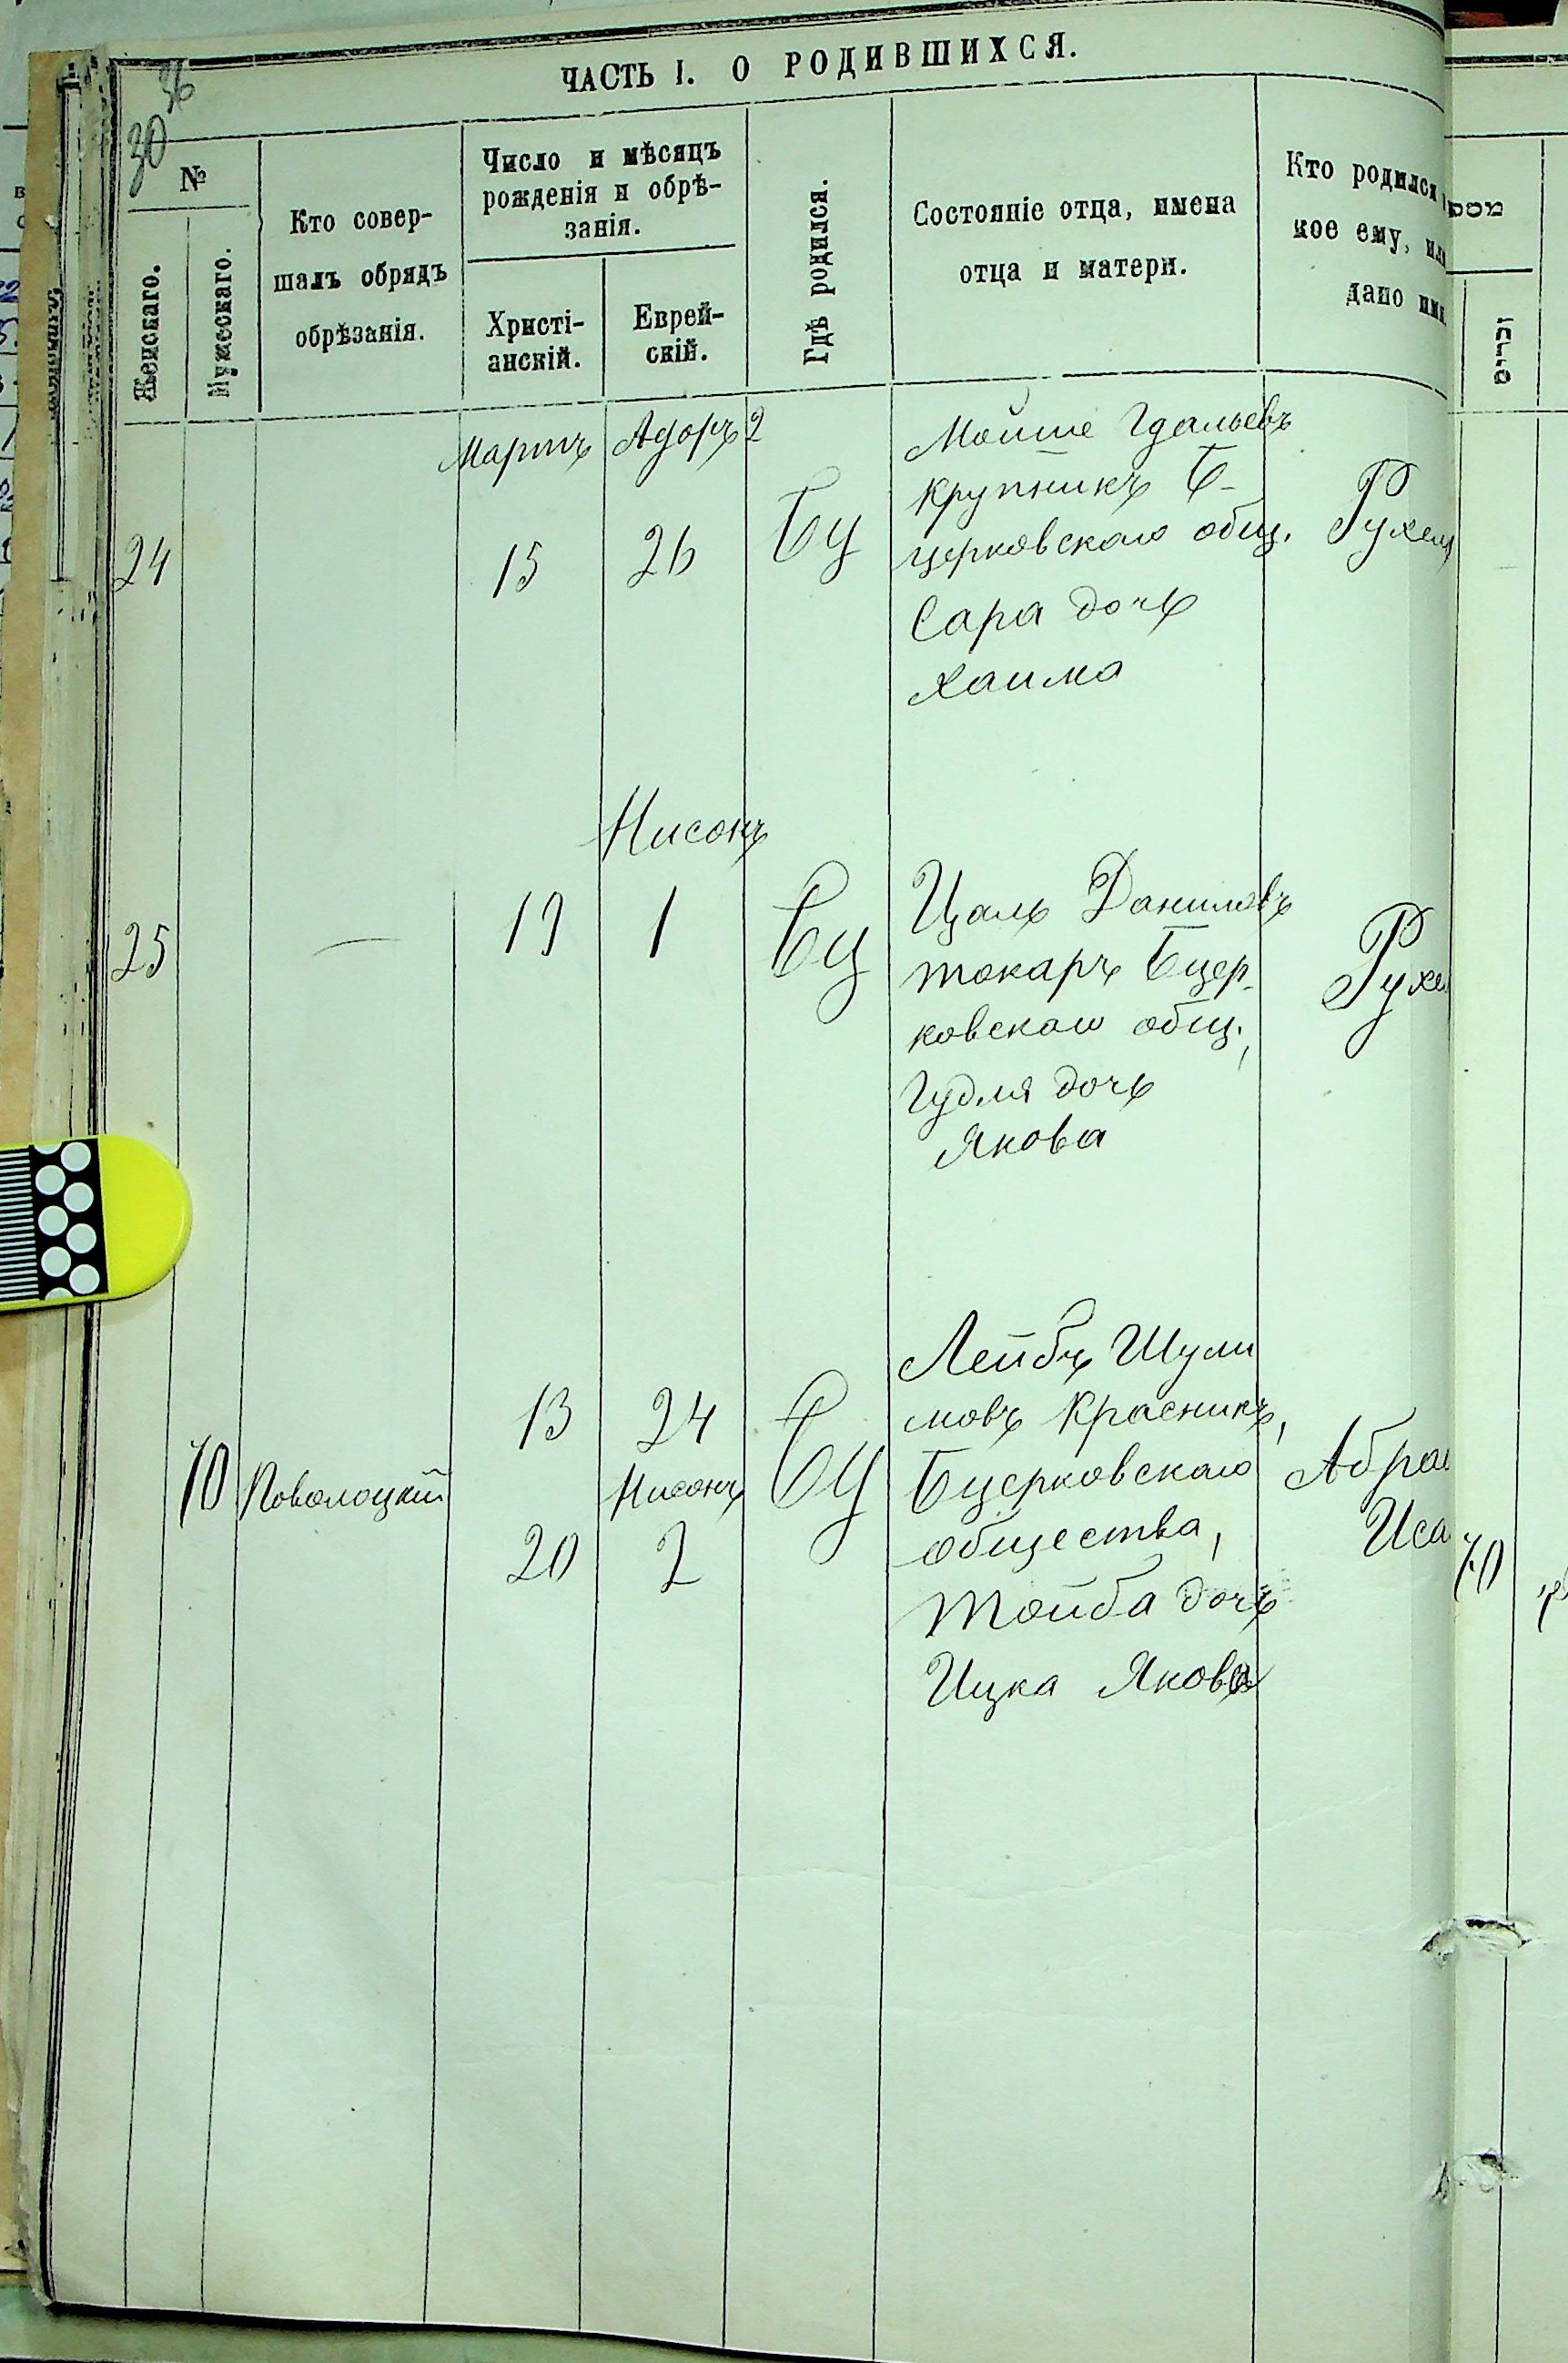 ЧАСТЬ I. О РОДИВШИХСЯ.
36
30
№
Женскаго.
Мужескаго.
Кто совер-
шалъ обрядъ
обрѣзанія.
Число и мѣсяцъ
рожденія и обрѣ-
занія.
Христі-
анскій.
Еврей-
скій.
Гдѣ родился.
Состояніе отца, имена
отца и матери.
Кто родился
кое ему, или
дано имя
מספ
זכרים
Мартъ
Адоръ 2
24
15
26
Бц
Мойше Гдальевъ
Крупникъ Б-
церковскаго общ.
Сара дочь
Хаима
Рухля
Нисонъ
25
—
19
1
Бц
Цаль Даниловъ
токаръ Бцер-
ковскаго общ.,
Гудля дочь
Якова
Рухл
70
Поволоцкій
13
24
Нисонъ
20
2
Бц
Лейбъ Шули
мовъ Красникъ,
Бцерковскаго
общества,
Тойба дочь
Ицка Якова
Абрам
Иса
70